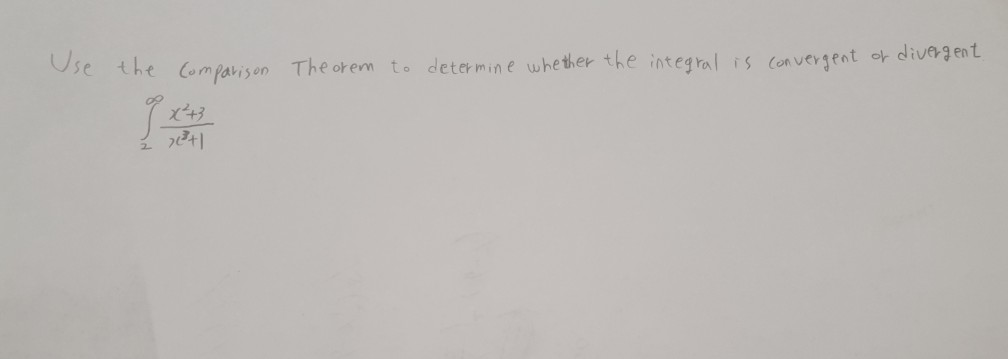 Use the Comparison Theorem to determine whether the integral is convergent or divergent
∫₂^∞ (x²+3)/(x³+1)